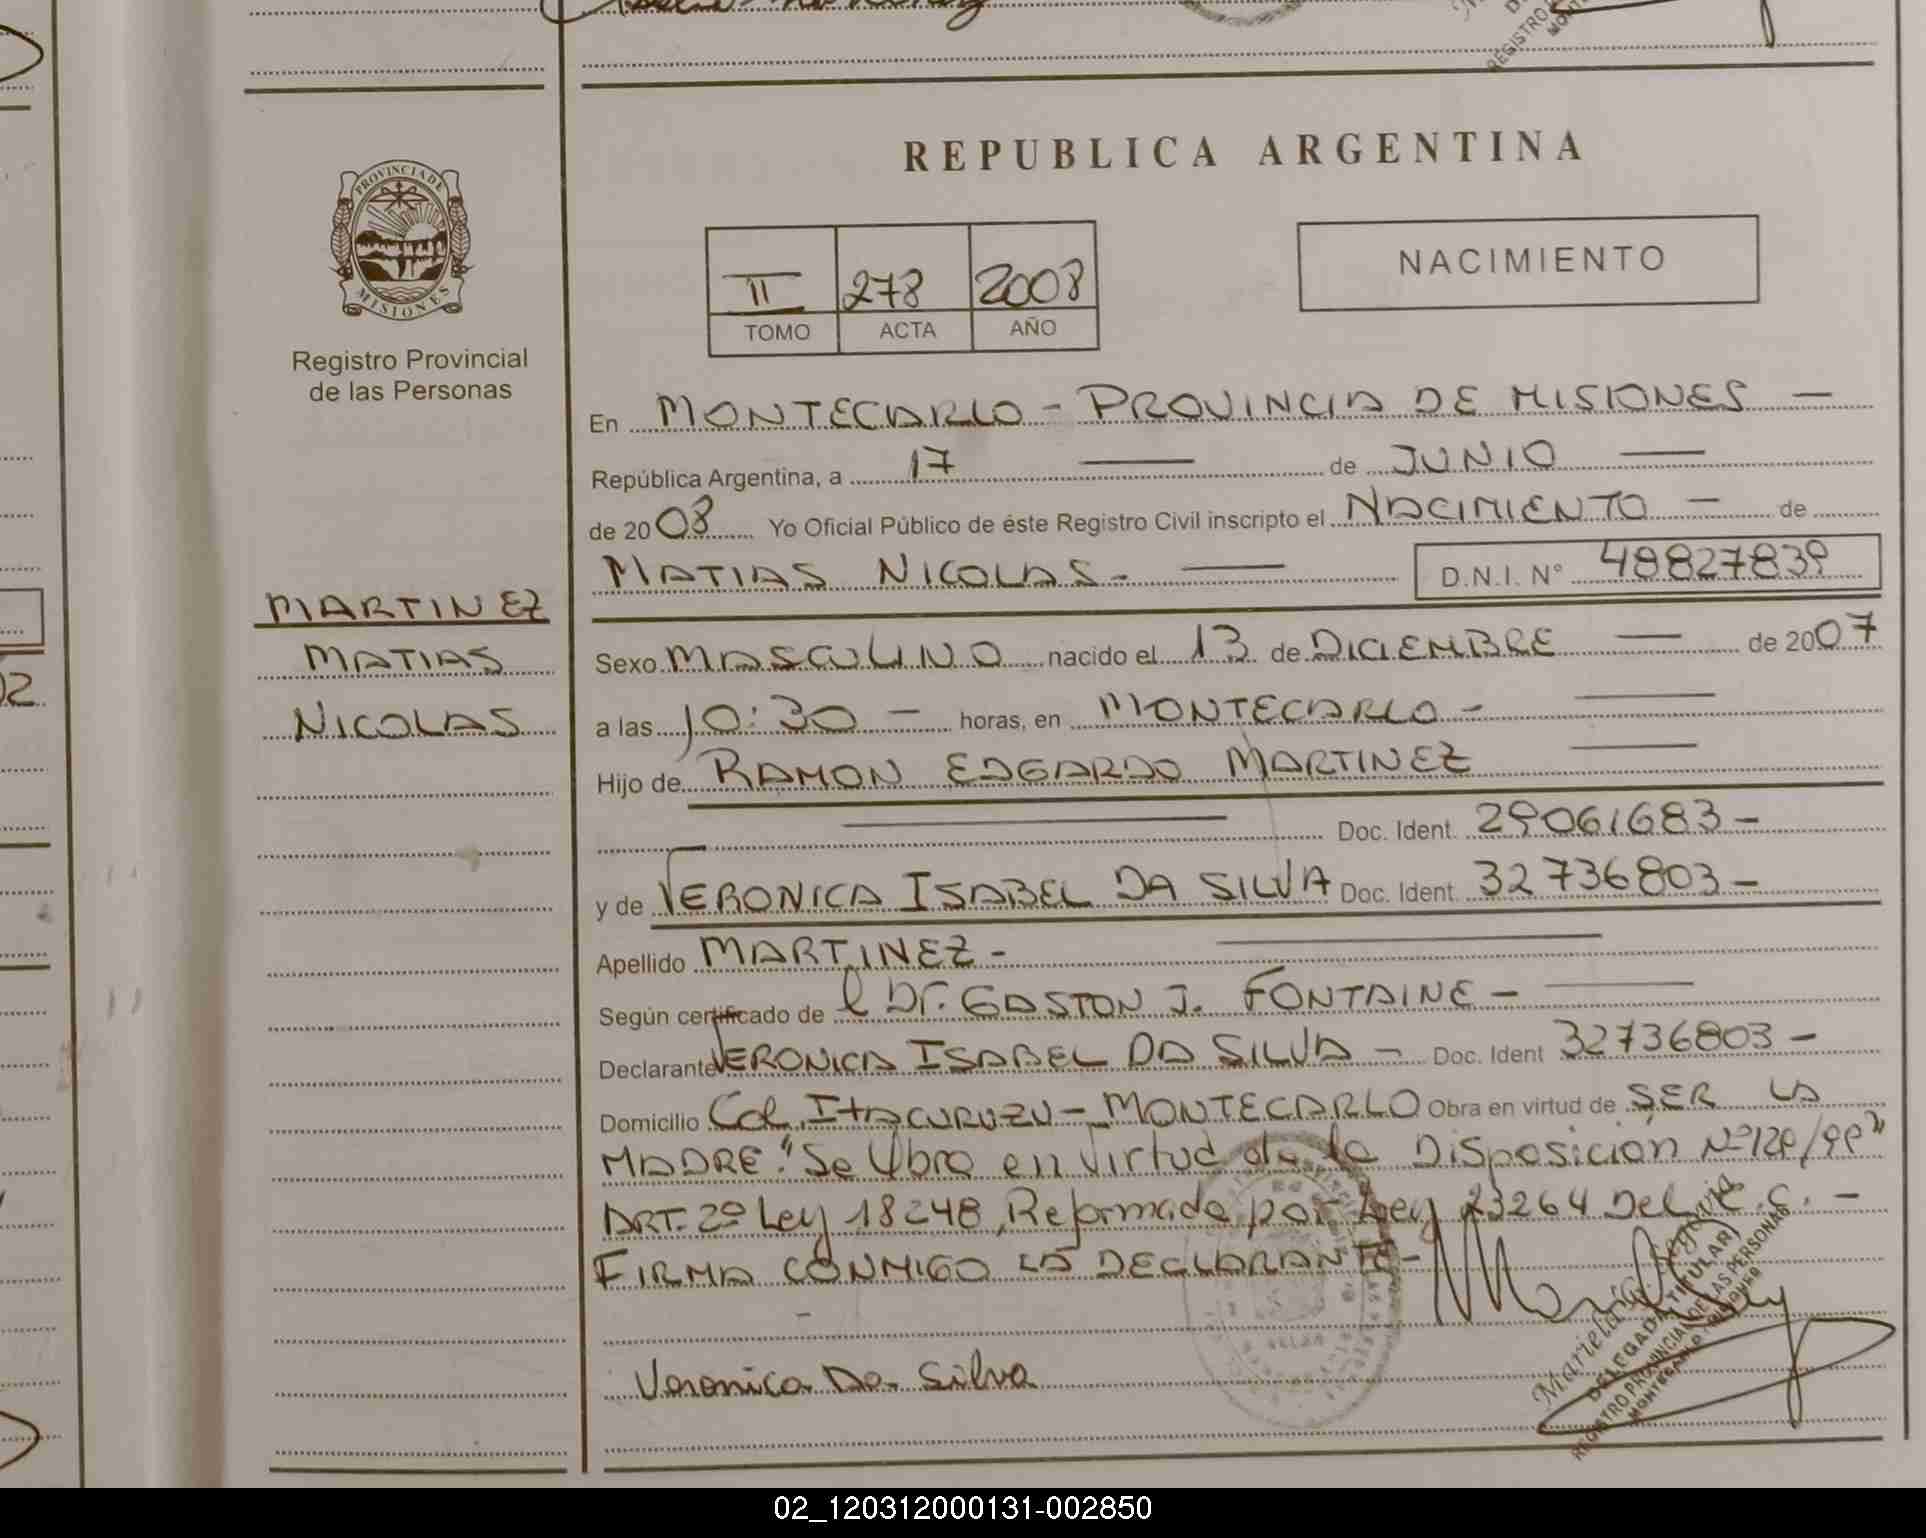 REPUBLICA ARGENTINA
PROVINCIA DE
MISIONES
Registro Provincial
de las Personas
NACIMIENTO
II 278 2008
TOMO ACTA AÑO
En MONTECARLO - PROVINCIA DE MISIONES —
República Argentina, a 17 — de JUNIO —
de 2008 Yo Oficial Público de éste Registro Civil inscripto el NACIMIENTO — de
MATIAS NICOLAS - — D.N.I. N° 48827839
MARTINEZ
MATIAS
NICOLAS
Sexo MASCULINO nacido el 13 de DICIEMBRE — de 2007
a las 10:30 — horas, en MONTECARLO - —
Hijo de RAMON EDGARDO MARTINEZ —
— Doc. Ident. 29061683 -
y de VERONICA ISABEL DA SILVA Doc. Ident. 32736803 -
Apellido MARTINEZ - —
Según certificado de l Dr. GASTON J. FONTAINE - —
Declarante VERONICA ISABEL DA SILVA - Doc. Ident 32736803 -
Domicilio Col. ITACURUZU - MONTECARLO Obra en virtud de SER LA
MADRE. "Se Obra en virtud de la Disposición Nº 129/99"
ART. 2º Ley 18248, Reformada por Ley 23264 Del C.C. -
FIRMA CONMIGO LA DECLARANTE -
Veronica Da Silva
DELEGADA TITULAR
REGISTRO PROVINCIAL DE LAS PERSONAS
MONTECARLO - MISIONES
02_120312000131-002850